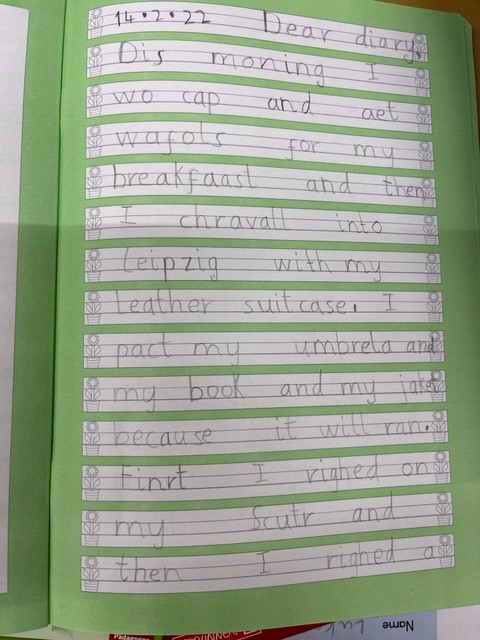 14.2.22 Dear diary,
Dis moning I
wo cap and aet
wafols for my
breakfaast and then
I chravall into
Leipzig with my
Leather suitcase. I
pact my umbrela and
my book and my jaket
because it will ran.
Finrt I righed on
my Scutr and
then I righed a
Name